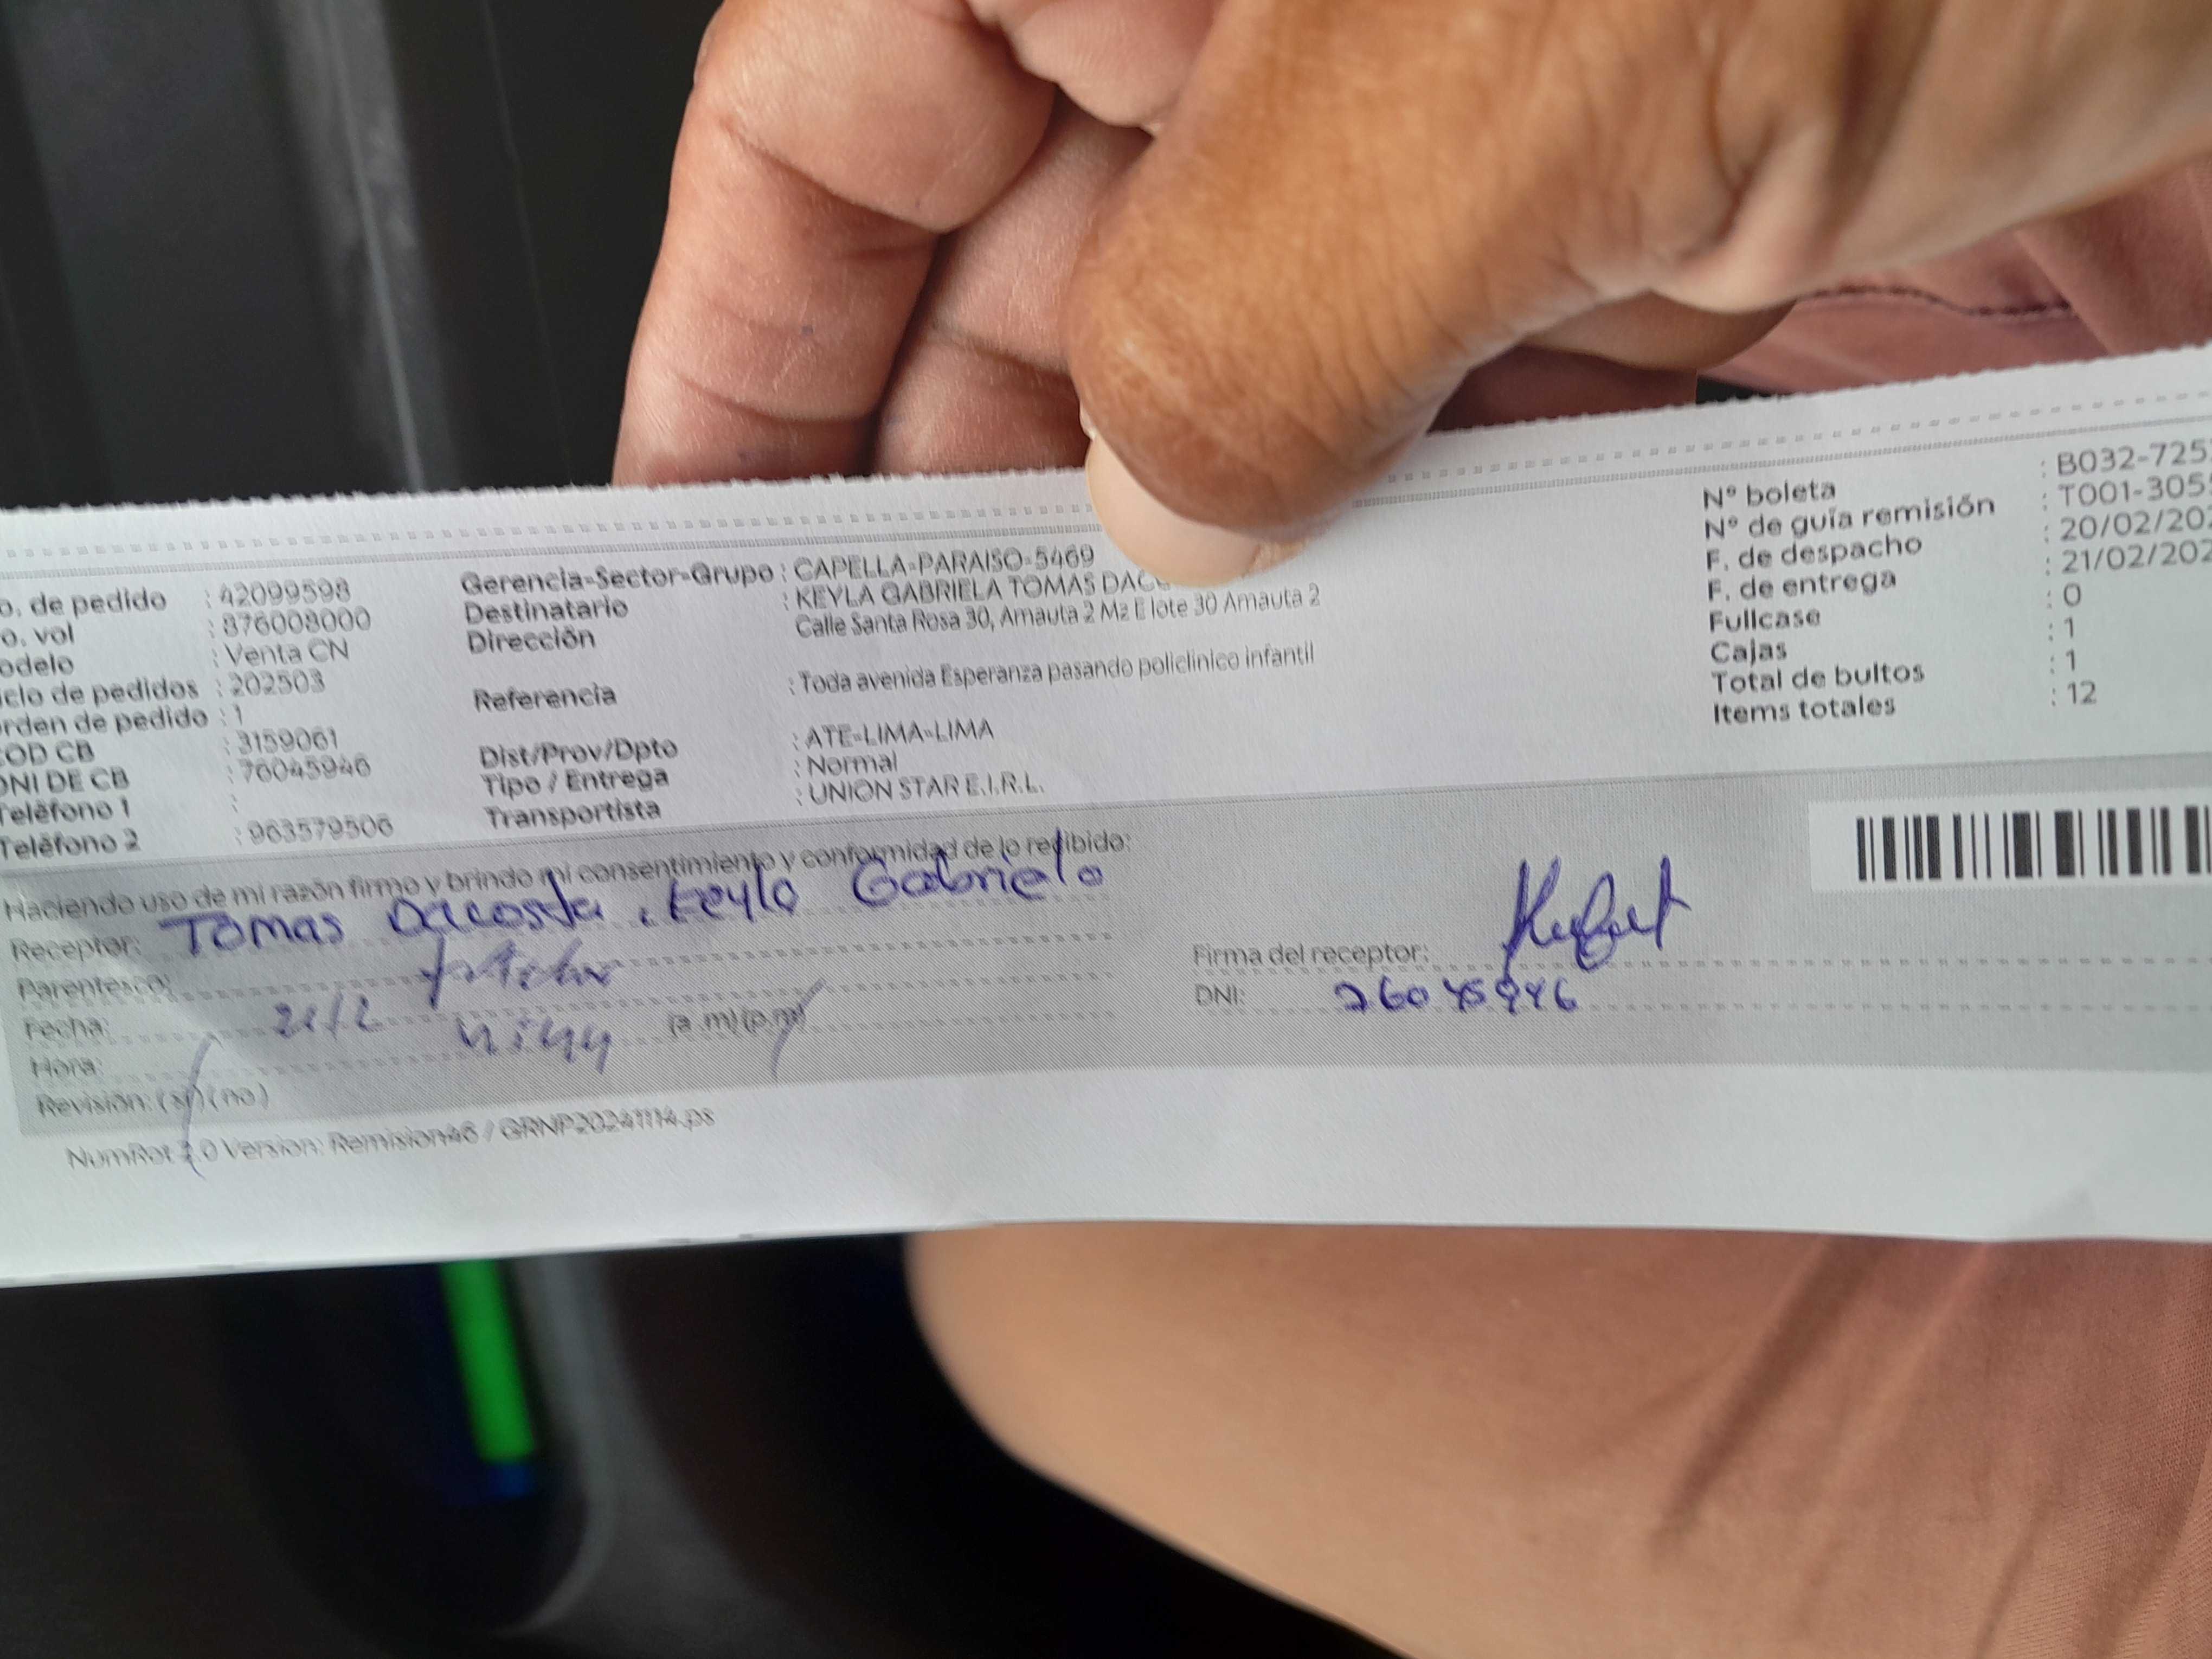 o. de pedido : 42099598
o. vol : 876008000
odelo : Venta CN
clo de pedidos : 202503
rden de pedido : 1
OD CB : 3159061
DNI DE CB : 76045946
Teléfono 1 :
Teléfono 2 : 963579506
Gerencia-Sector-Grupo : CAPELLA-PARAISO-5469
Destinatario : KEYLA GABRIELA TOMAS DAC
Dirección Calle Santa Rosa 30, Amauta 2 Mz E lote 30 Amauta 2
Referencia : Toda avenida Esperanza pasando policlinico infantil
Dist/Prov/Dpto : ATE-LIMA-LIMA
Tipo / Entrega : Normal
Transportista : UNION STAR E.I.R.L.
N° boleta : B032-725
N° de guía remisión : T001-305
F. de despacho : 20/02/202
F. de entrega : 21/02/202
Fullcase : 0
Cajas : 1
Total de bultos : 1
Items totales : 12
Haciendo uso de mi razón firmo y brindo mi consentimiento y conformidad de lo recibido:
Receptor: Tomas Dacosta, Keyla Gabriela
Parentesco:
Fecha: 21/2
Hora: (a.m) (p.m)
Revisión: (si) (no)
Firma del receptor:
DNI: 76045946
NumRot 2.0 Version: Remision46 / GRNP20241114.ps